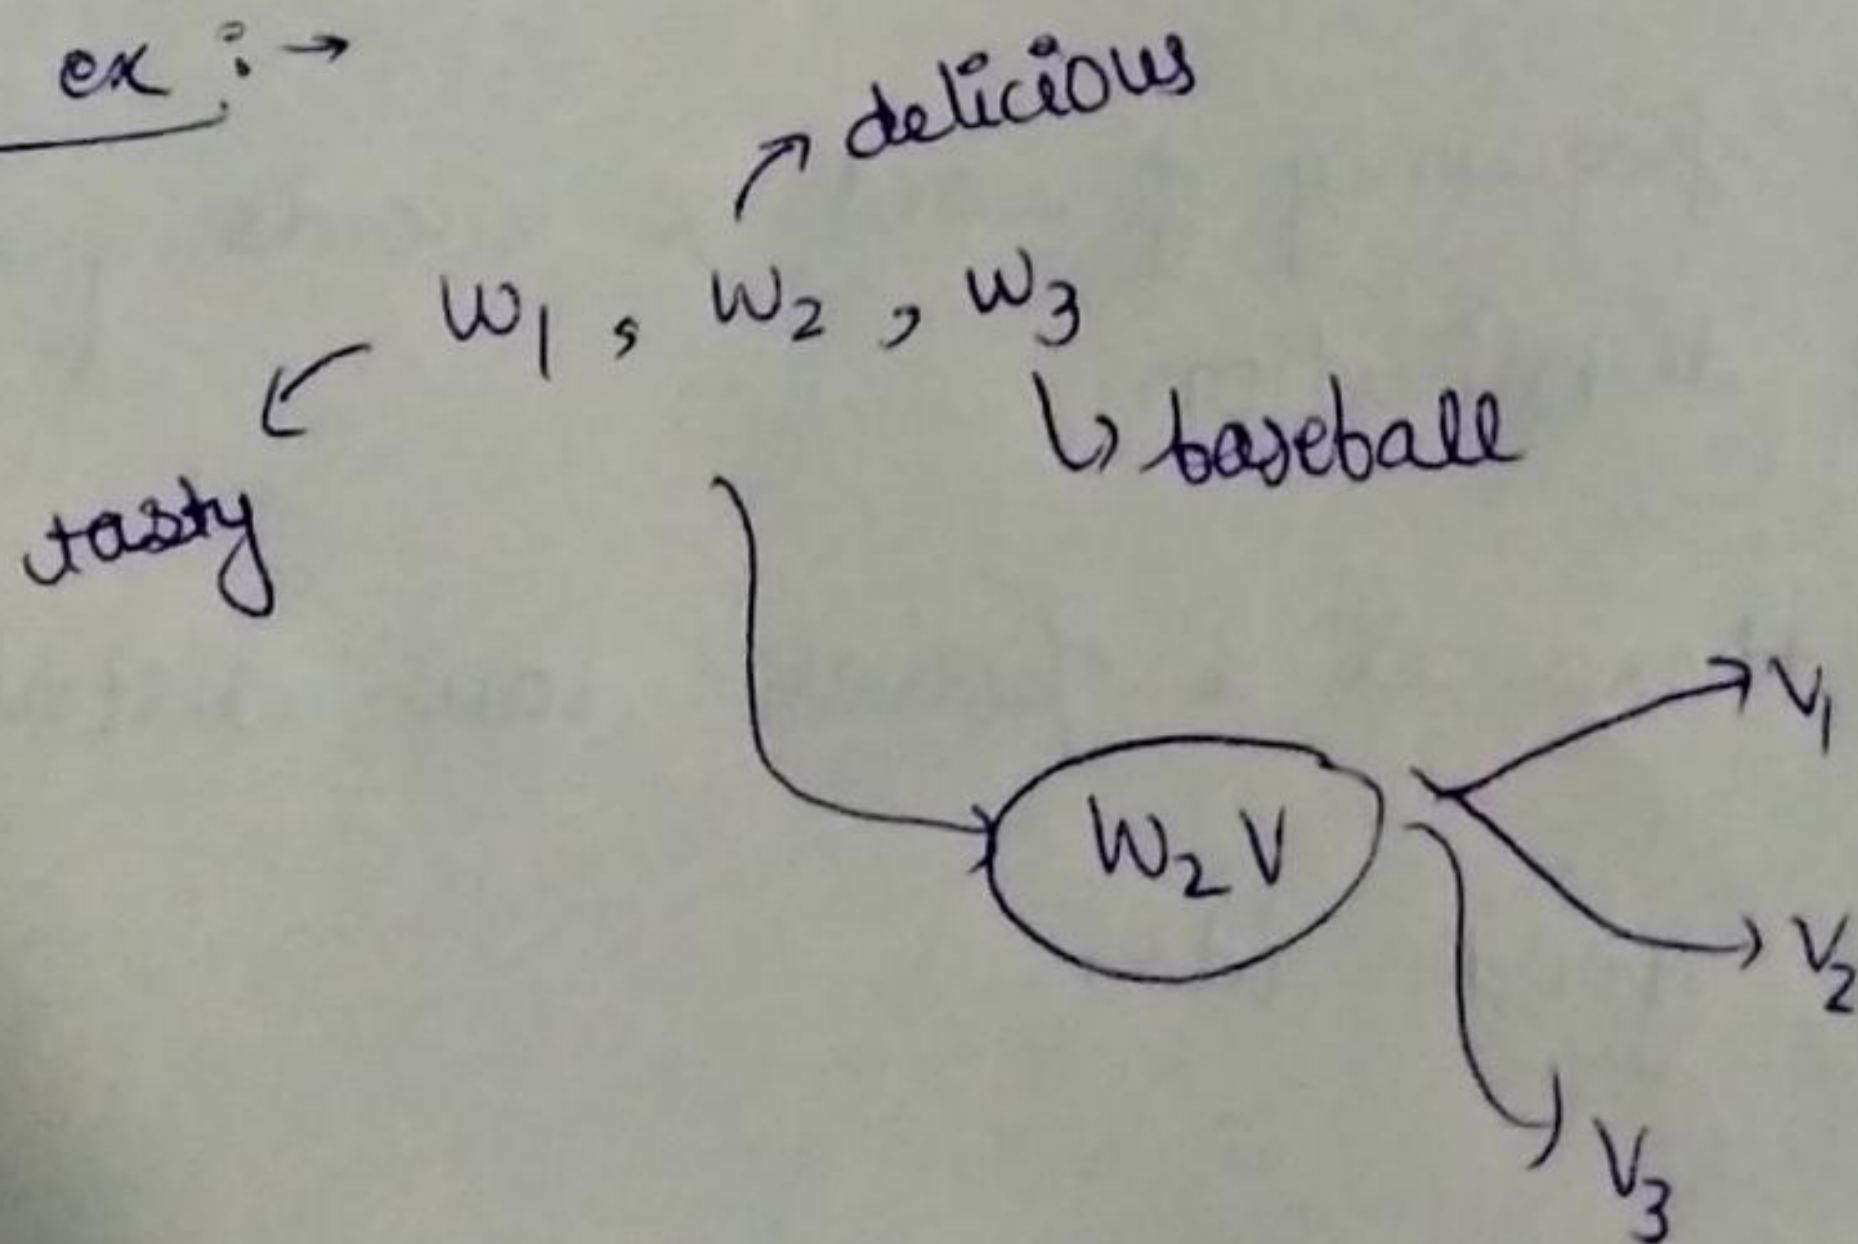 ex : →
delicious
w1, w2, w3
baseball
tasty
W2V
V1
V2
V3